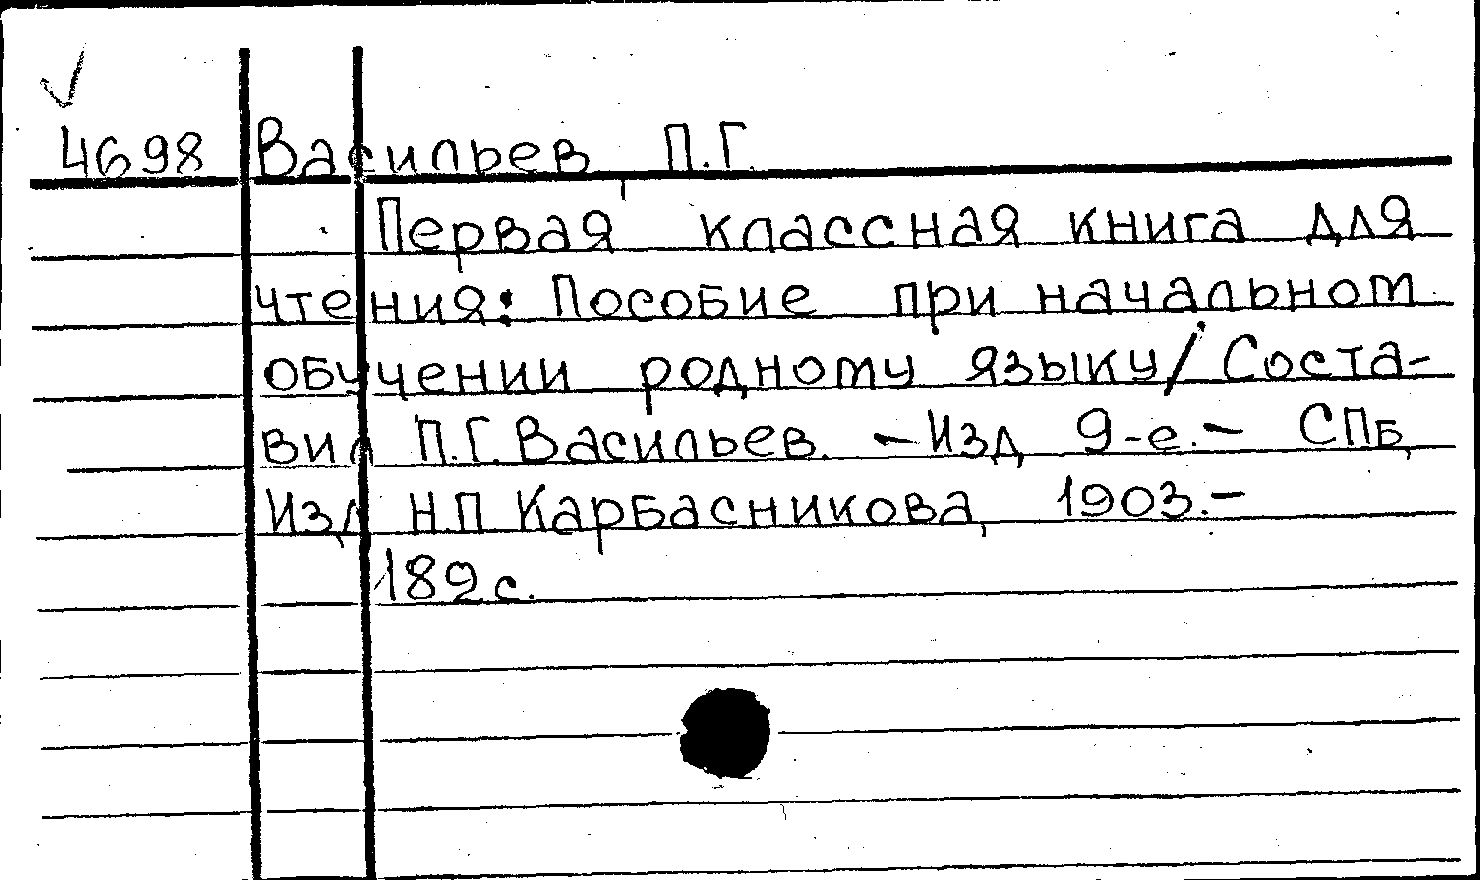 4698 Васильев П.Г.
Первая классная книга для
чтения: Пособие при начальном
обучении родному языку/Соста-
вил П.Г.Васильев. – Изд 9-е. – СПб,
Изд Н.П Карбасникова, 1903. –
189с.